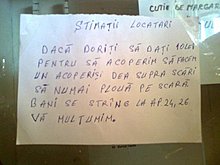 CUTIE DE MARGAR
STIMAȚII LOCATARI
DACĂ DORIȚI SĂ DAȚI 10LEI
PENTRU SĂ ACOPERIM SĂ FACEM
UN ACOPERIȘI DEA SUPRA SCĂRI
SĂ NUMAI PLOUĂ PE SCARĂ
BANI SE STRÎNG LA AP 24,26
VĂ MULȚUMIM.